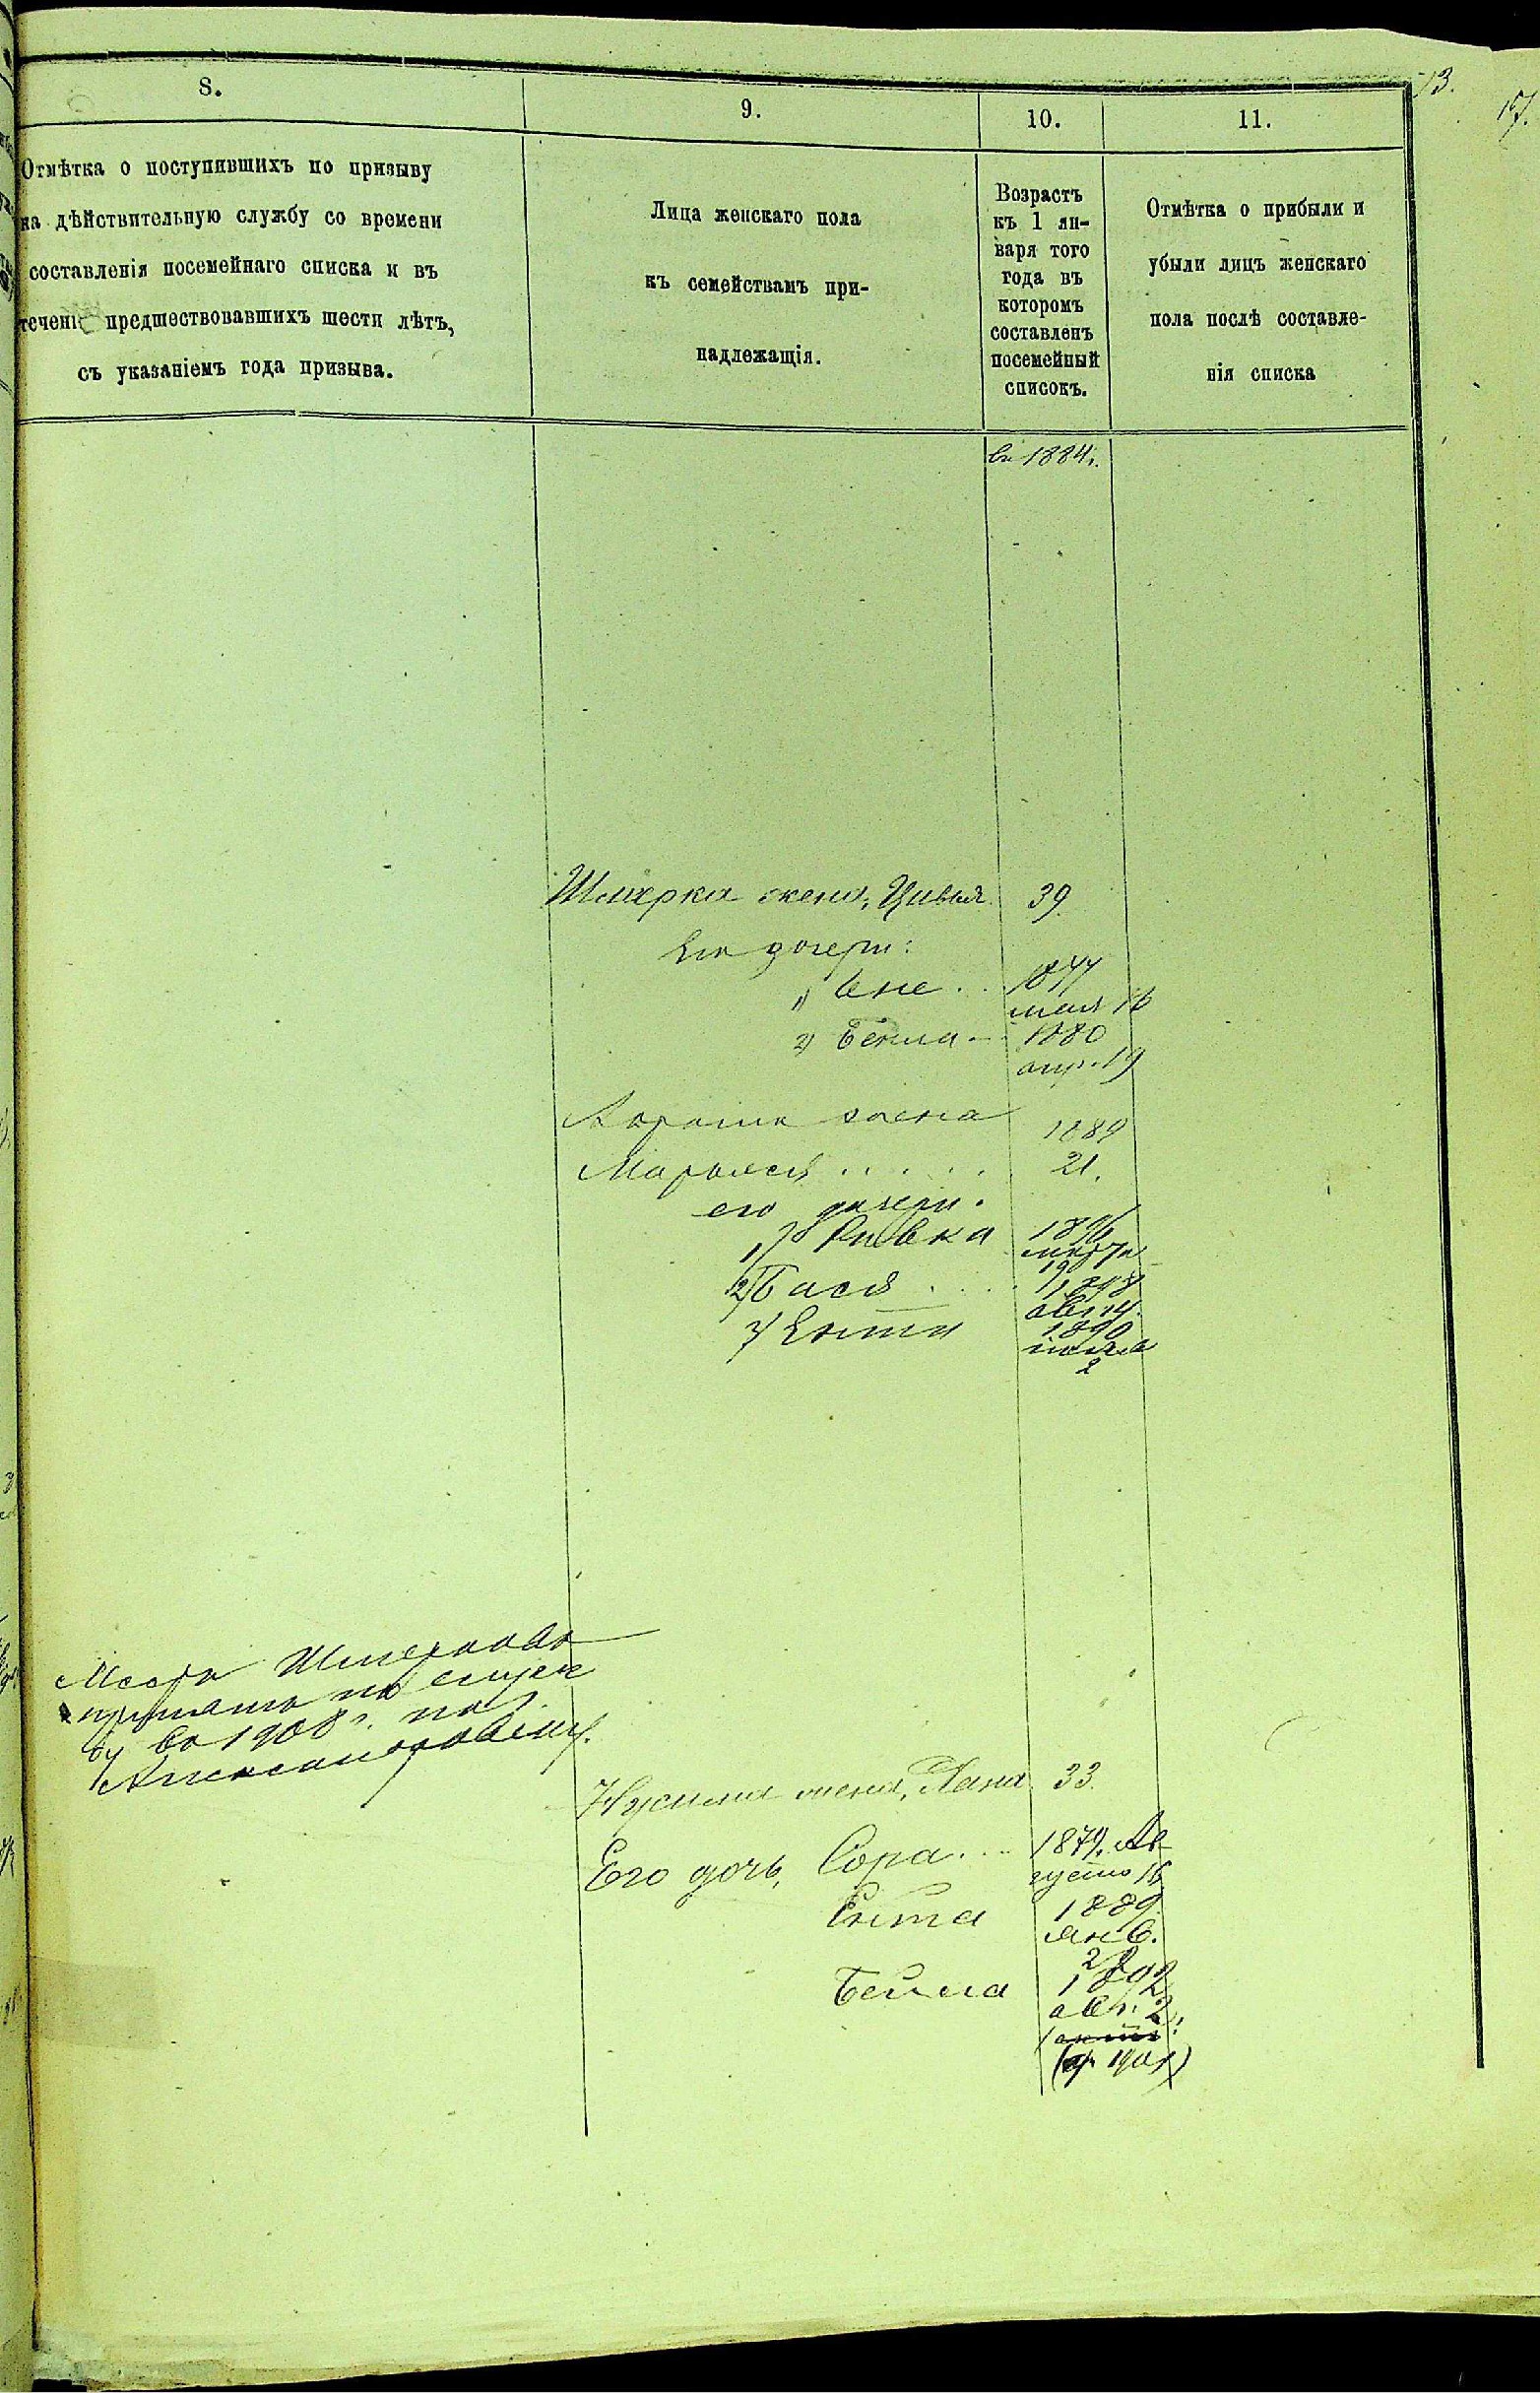 13.
17.
8.
9.
10.
11.
Отмѣтка о поступившихъ по призыву
на дѣйствительную службу со времени
составленія посемейнаго списка и въ
теченіе предшествовавшихъ шести лѣтъ,
съ указаніемъ года призыва.
Лица женскаго пола
къ семействамъ при-
надлежащія.
Возрастъ
къ 1 ян-
варя того
года въ
которомъ
составленъ
посемейный
списокъ.
Отмѣтка о прибыли и
убыли лицъ женскаго
пола послѣ составле-
нія списка
въ 1884 г.
Шмерка жена, Цивья 39.
Его дочери:
1) . . 1877
мая 16
2) Бейла 1880
апр. 19
жена 1889
21.
его дочери.
1) Ривка 1896
марта
19
2) Бася . . . 1898
авг. 14.
3) Ента 1890
2
Шмерковъ
принятъ на служ
бу въ 1908 г. по
Александровскому.
Нусина жена, Хана 33.
Его дочь, Сора . . . 1879. Ав
густа 16
Ента 1889
янв.
2
Бейла 1892
авг. 2
1901)